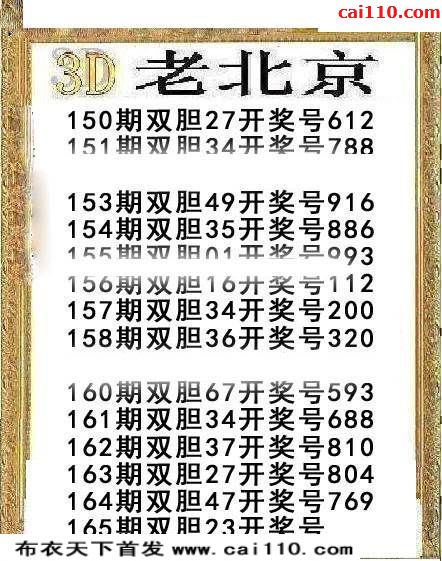 cai110.com
3D 老北京
150期双胆27开奖号612
151期双胆34开奖号788
153期双胆49开奖号916
154期双胆35开奖号886
155期双胆01开奖号993
156期双胆16开奖号112
157期双胆34开奖号200
158期双胆36开奖号320
160期双胆67开奖号593
161期双胆34开奖号688
162期双胆37开奖号810
163期双胆27开奖号804
164期双胆47开奖号769
165期双胆23开奖号
布衣天下首发 www.cai110.com